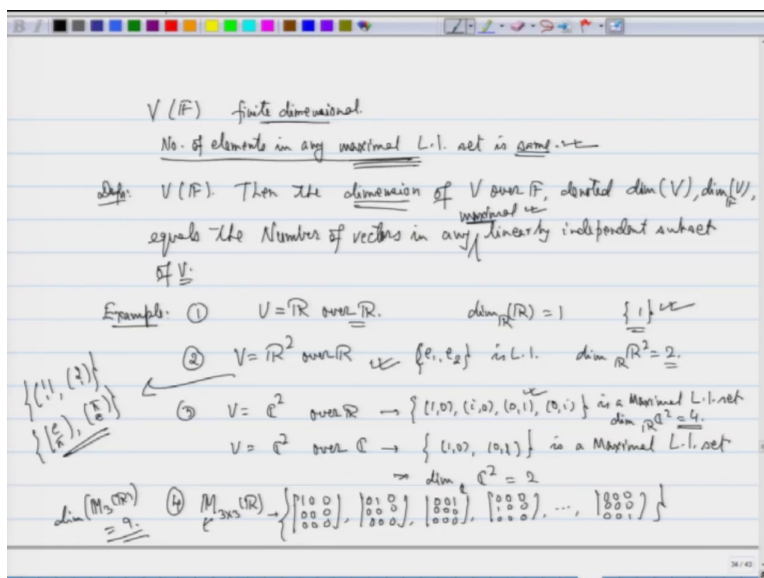 V (𝔽) finite dimensional.
No. of elements in any maximal L.I. set is same.
Defn: V(𝔽). Then the dimension of V over 𝔽, denoted dim(V), dim_𝔽(V),
maximal
equals the Number of vectors in any linearly independent subset
of V.
Example: ① V = ℝ over ℝ. dim_ℝ(ℝ) = 1 {1}
② V = ℝ² over ℝ {e₁, e₂} is L.I. dim_ℝ ℝ² = 2.
{(1 1), (2 1)}
{(e π), (π e)}
③ V = ℂ² over ℝ → {(1,0), (i,0), (0,1), (0,i)} is a Maximal L.I. set
dim_ℝ ℂ² = 4.
V = ℂ² over ℂ → {(1,0), (0,1)} is a Maximal L.I. set
⇒ dim_ℂ ℂ² = 2
dim(M₃(ℝ)) = 9. ④ M₃ₓ₃(ℝ) → {[1 0 0; 0 0 0; 0 0 0], [0 1 0; 0 0 0; 0 0 0], [0 0 1; 0 0 0; 0 0 0], [0 0 0; 1 0 0; 0 0 0], ..., [0 0 0; 0 0 0; 0 0 1]}
34 / 43